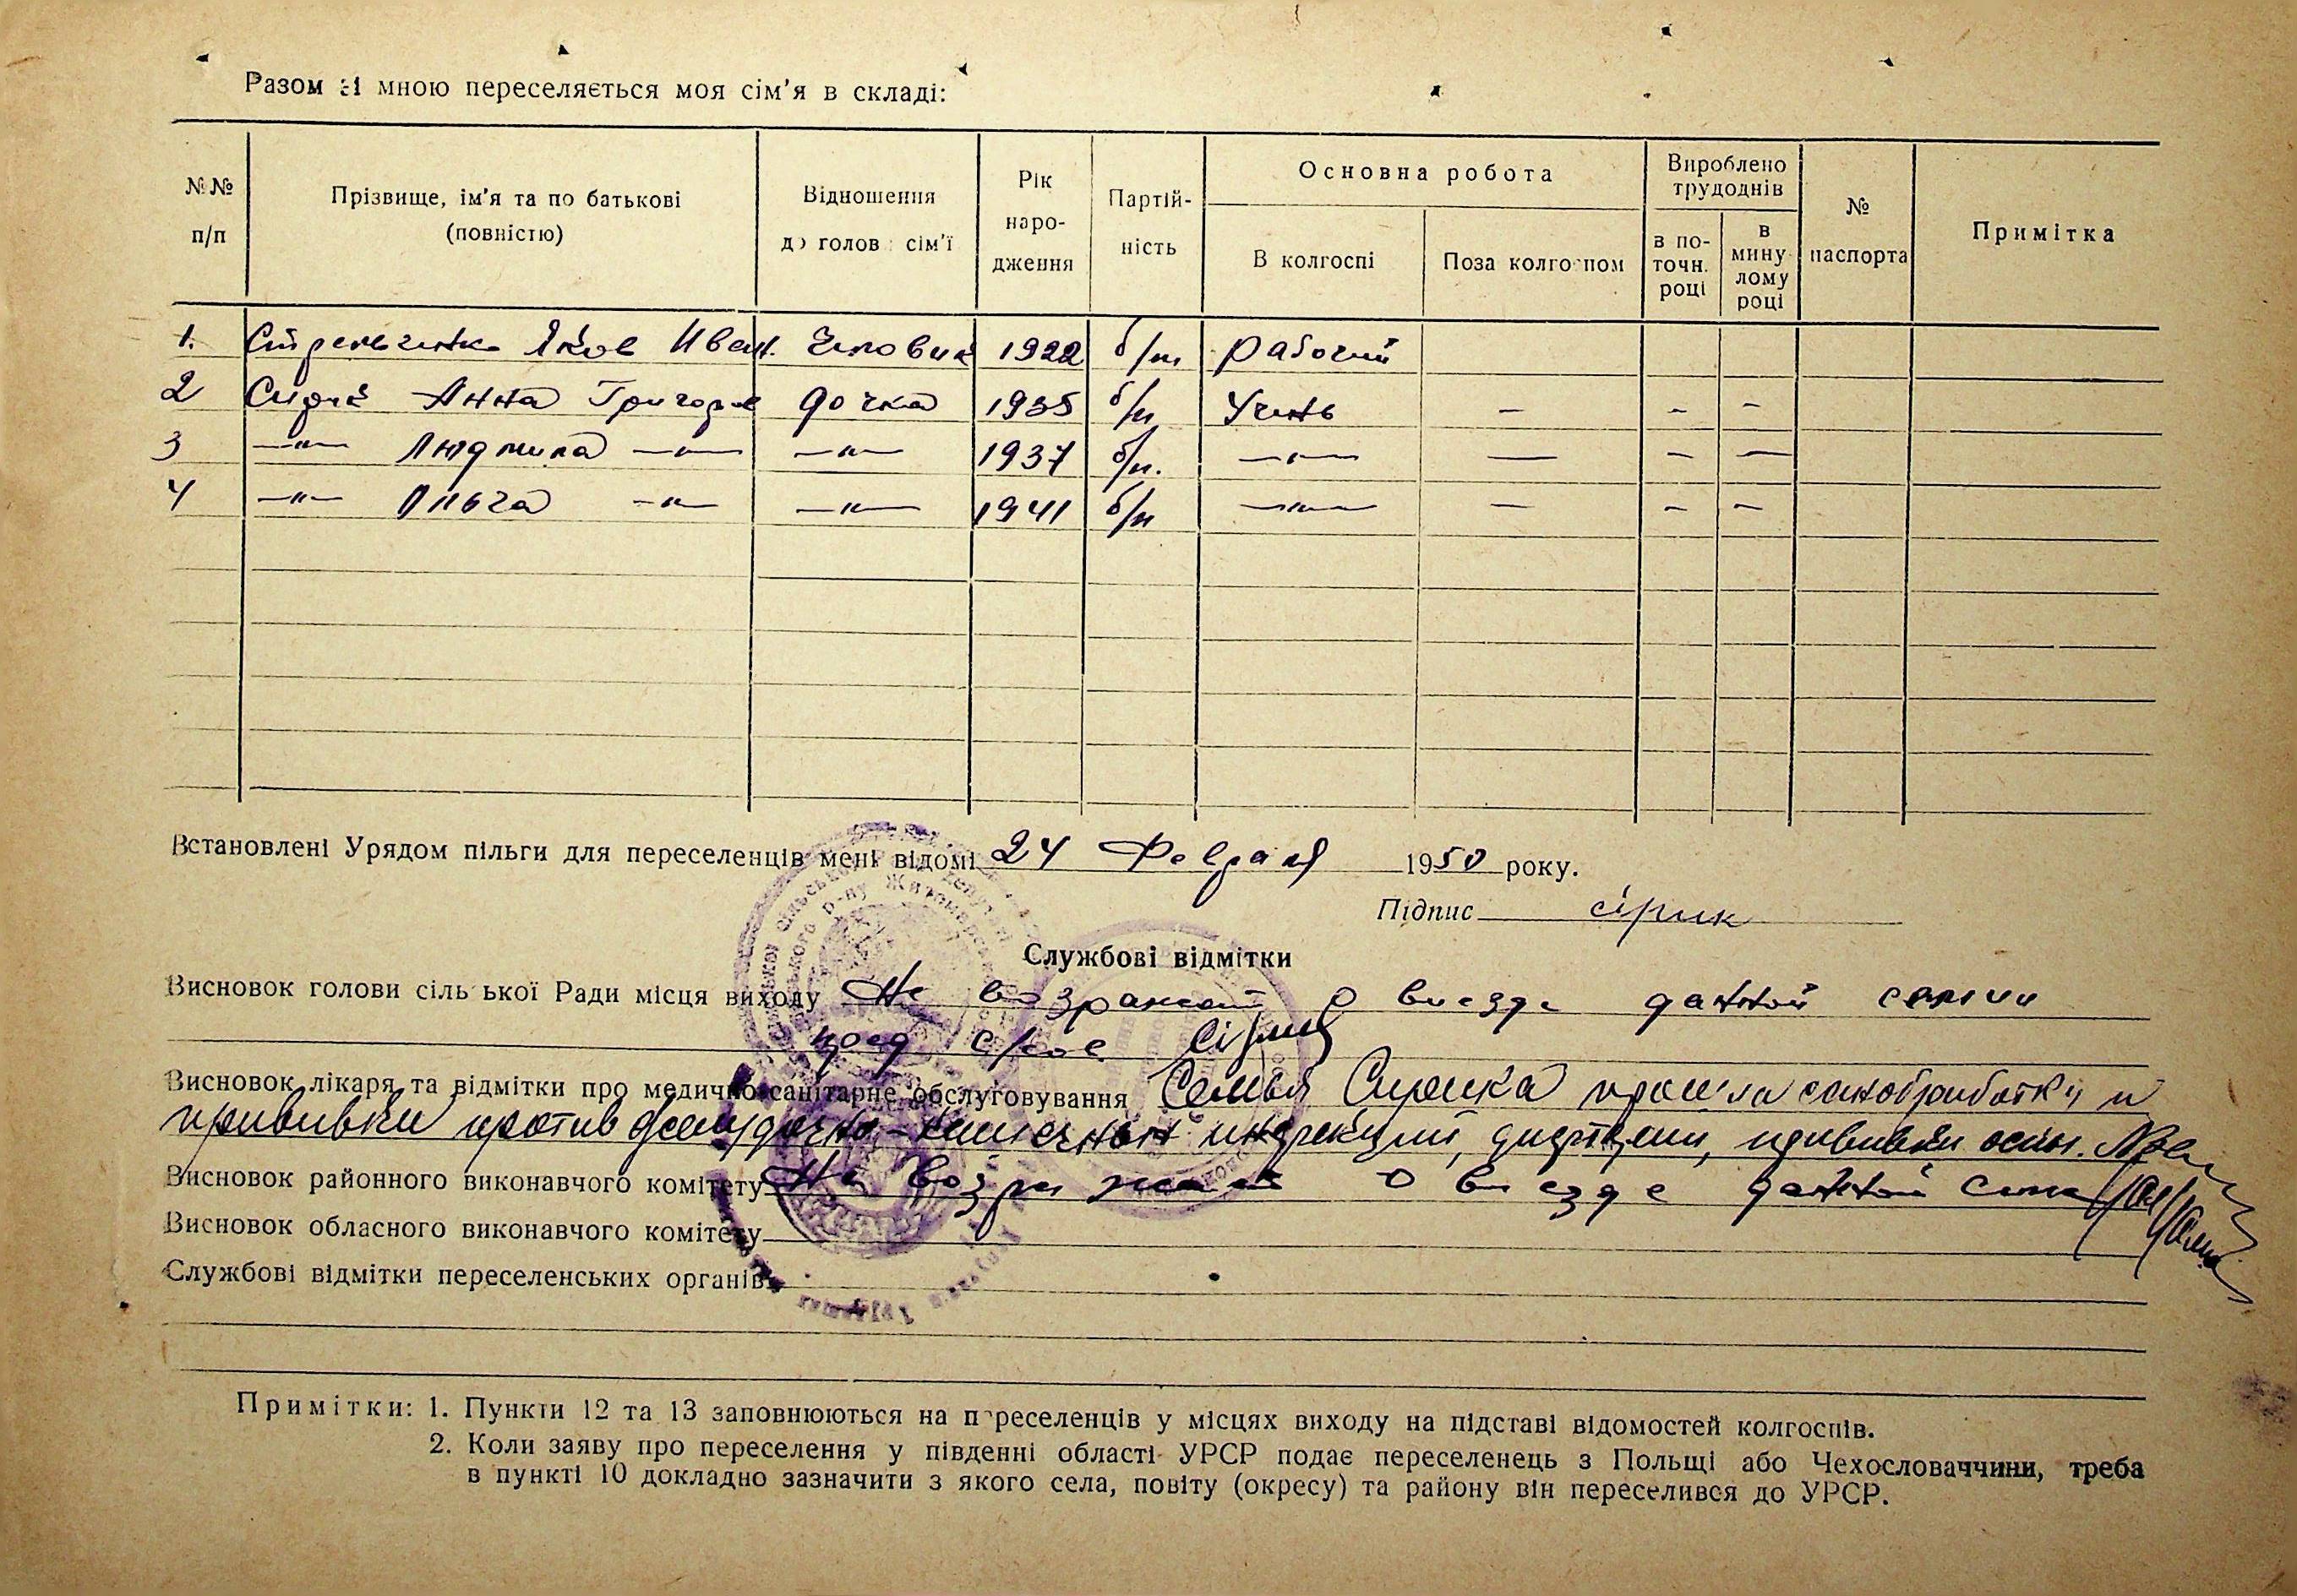 Разом зі мною переселяється моя сім'я в складі:
№№ п/п
Прізвище, ім'я та по батькові (повністю)
Відношення до голови сім'ї
Рік народження
Партійність
Основна робота
В колгоспі
Поза колгоспом
Вироблено трудоднів
в поточн. році
в минулому році
№ паспорта
Примітка
1. Яков Иван. Чоловик 1922 б/п рабочий
2 Анна Григор. дочка 1935 б/п Учень — – –
3 —"— Людмила —"— —"— 1937 б/п. —"— — – —
4 —"— Ольга —"— —"— 1941 б/п —"— — – –
Встановлені Урядом пільги для переселенців мені відомі 24 Февраля 1950 року.
Підпис сірик
Службові відмітки
Висновок голови сільської Ради місця виходу Не возражает о виезде данной семи
пред с/сов.
Висновок лікаря та відмітки про медично-санітарне обслуговування Семья Сирика прошла санобработку и
прививки против желудочно-кишечных инфекций, дифтерии, прививки оспы.
Висновок районного виконавчого комітету Не возражает о виезде данной
Висновок обласного виконавчого комітету
Службові відмітки переселенських органів
Примітки: 1. Пункти 12 та 13 заповнюються на переселенців у місцях виходу на підставі відомостей колгоспів.
2. Коли заяву про переселення у південні області УРСР подає переселенець з Польщі або Чехословаччини, треба
в пункті 10 докладно зазначити з якого села, повіту (округу) та району він переселився до УРСР.